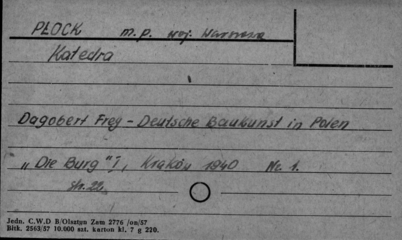 PŁOCK m.p. woj. Warszawa
Katedra
Dagobert Frey - Deutsche Baukunst in Polen
„Die Burg" I, Kraków 1940 Nr. 1.
str. 22.
Jedn. C.W.D B/Olsztyn Zam 2776 /on/57
Bitk. 2563/57 10.000 szt. karton kl. 7 g 220.